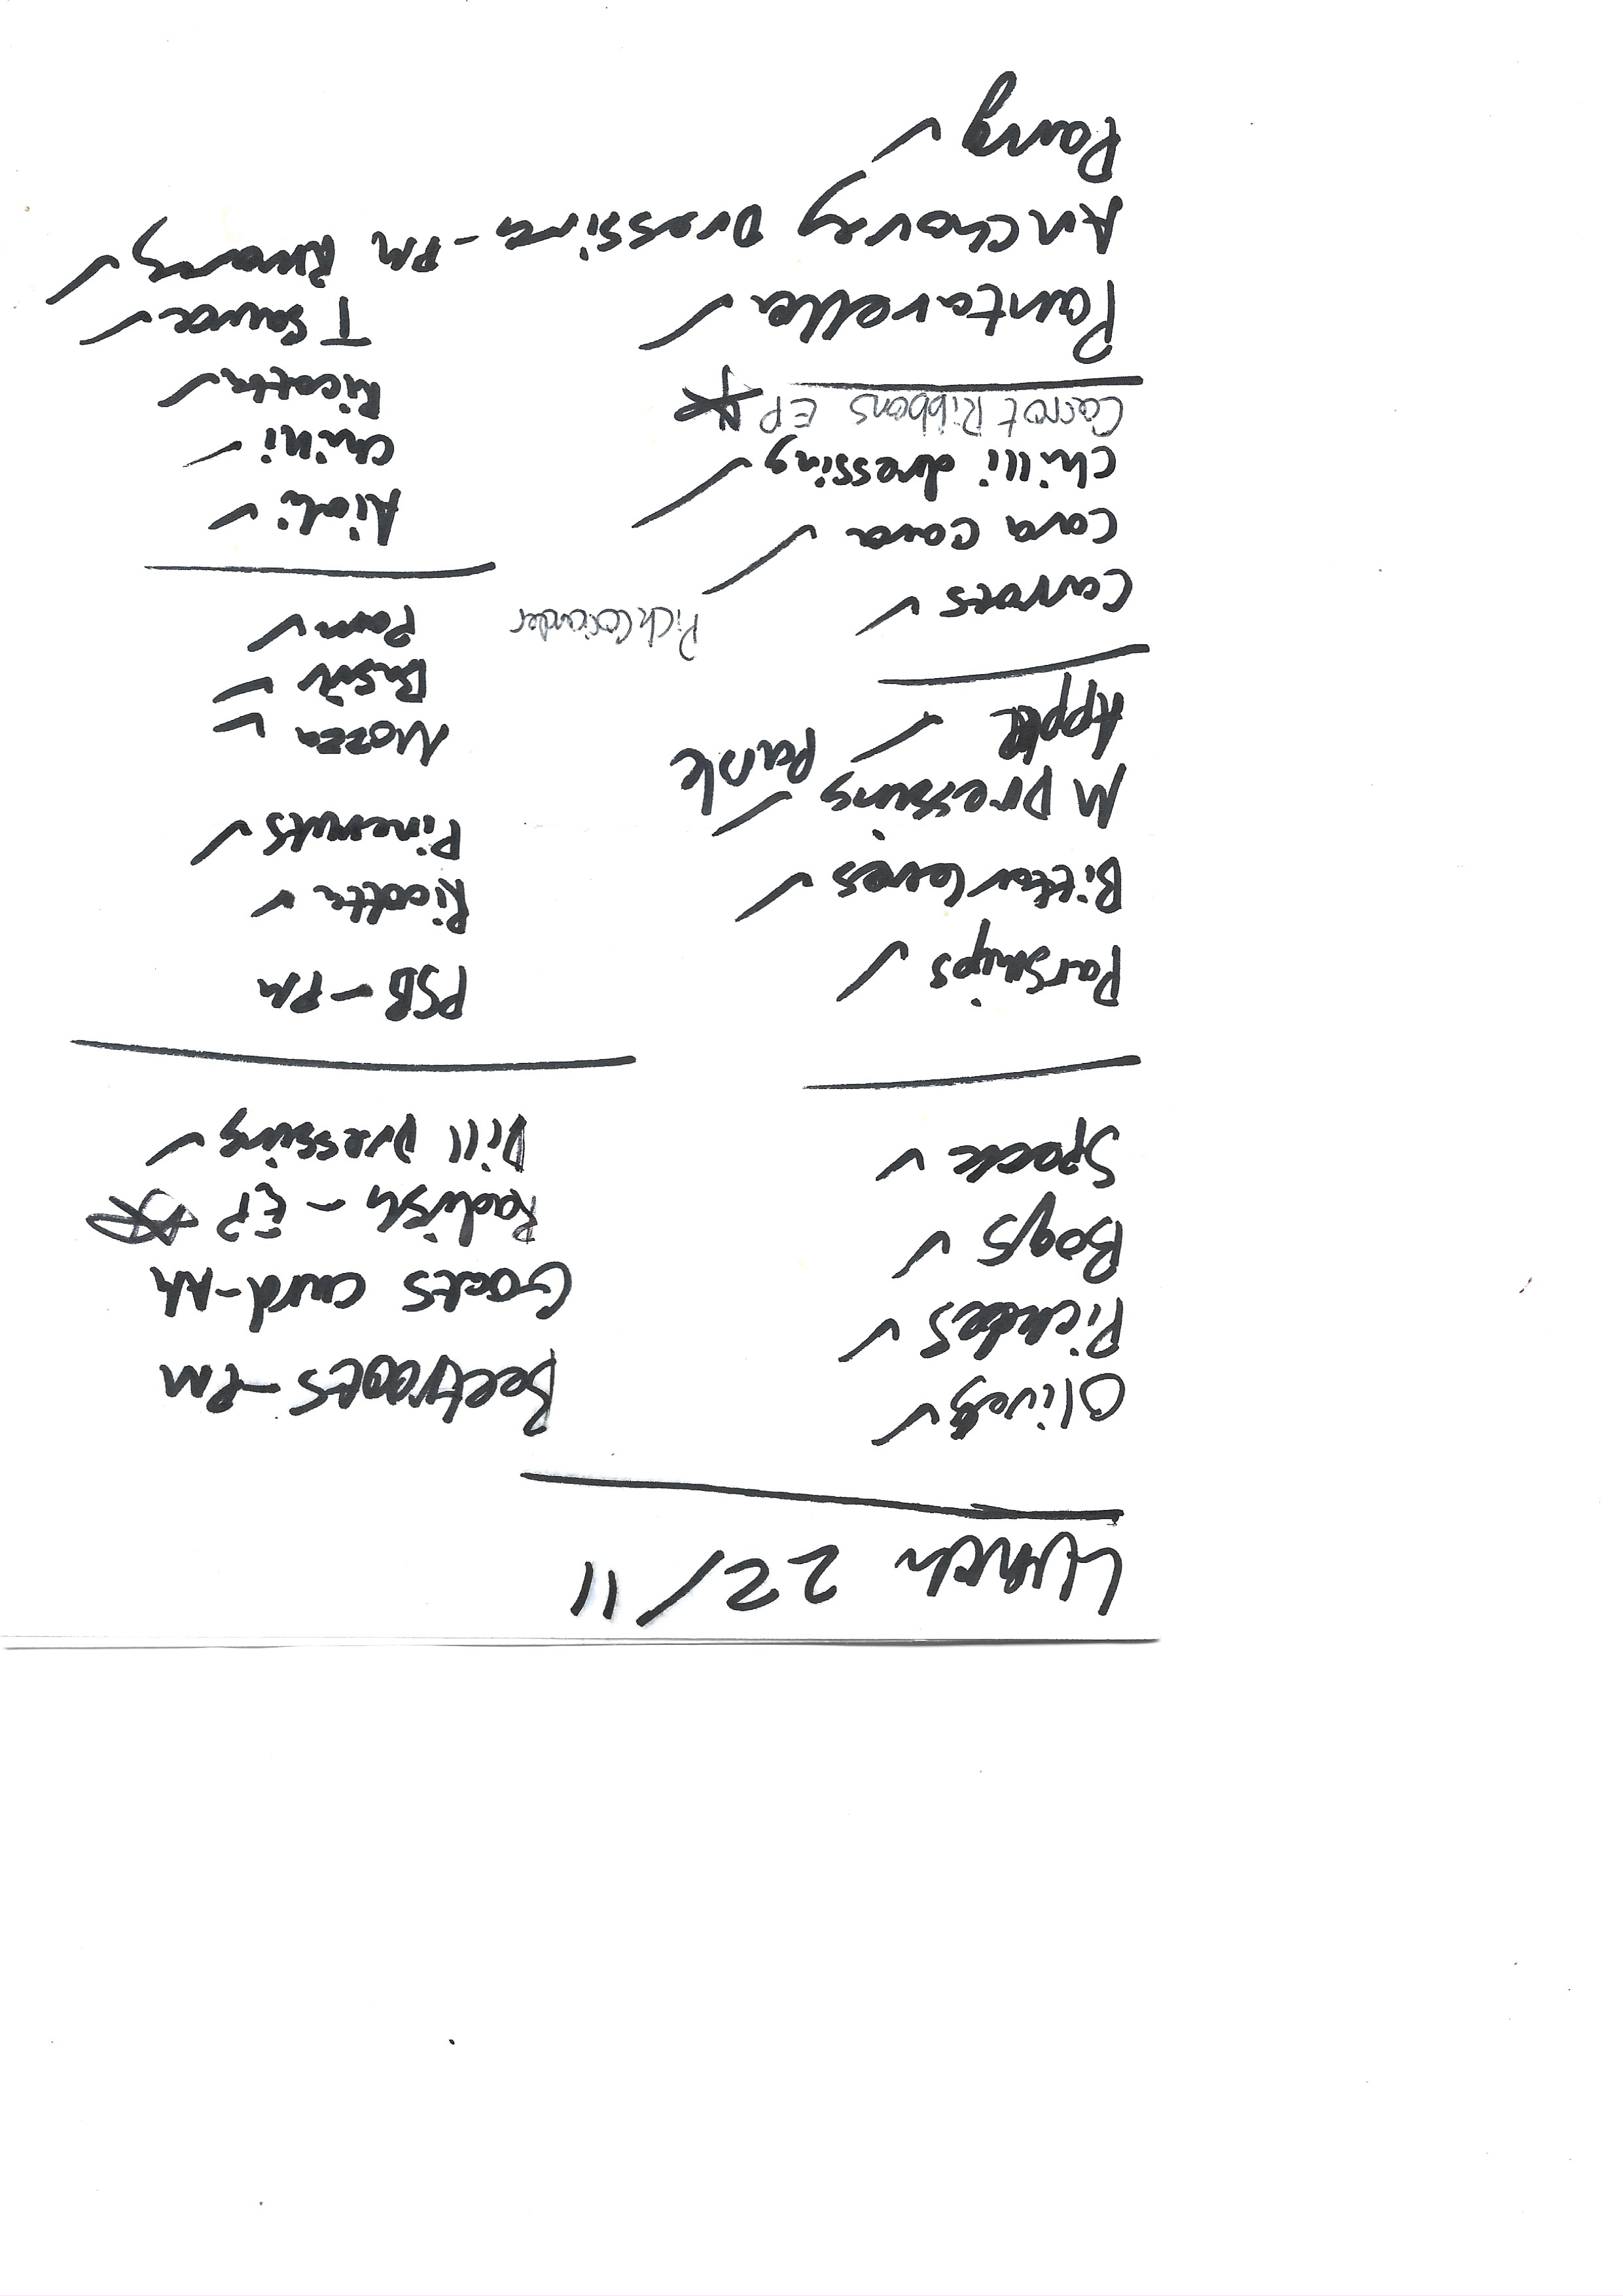 Lunch 22/11
Olives ✓
Pickles ✓
Bags ✓
Speck ✓
Parsnips ✓
Bitter leaves ✓
M Dressing ✓
Apple ✓ Pank
Carrots ✓
Cava Cava ✓
Chilli dressing ✓
Carrot Ribbons EP
Puntarella ✓
Anchovy Dressing - PM
Pang ✓
Beetroots - PM
Goats curd - AM
Radish - EP
Dill Dressing ✓
PSB - PM
Ricotta ✓
Pinenuts ✓
Mozza ✓
Basil ✓
Parm ✓
Pick Coriander
Aioli ✓
Chilli ✓
Ricotta ✓
T Sauce ✓